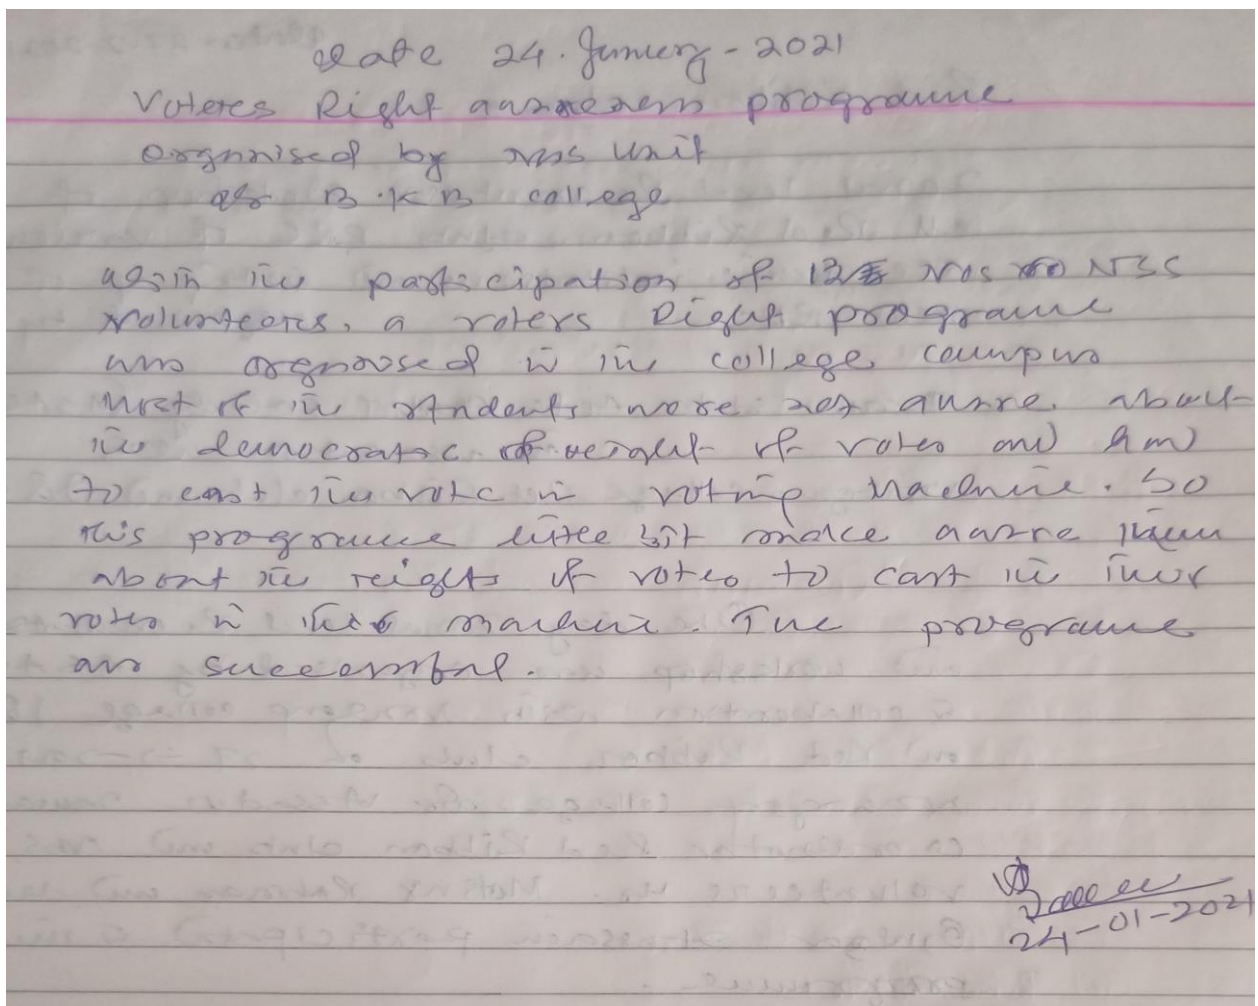 Date 24. January - 2021
Voteres Right awareness programme
Orgnised by NSS Unit
of B.K B College
With the participation of 12 Nos NSS
Volunteers, a voters Right programme
was orgnised in the college campus
Most of the students were not aware about
the democratic of weight of votes and how
to cast the vote in voting Machine. So
this programme little bit make aware them
about the reights of votes to cast the their
votes in the machine. The programme
was successful.
24-01-2021